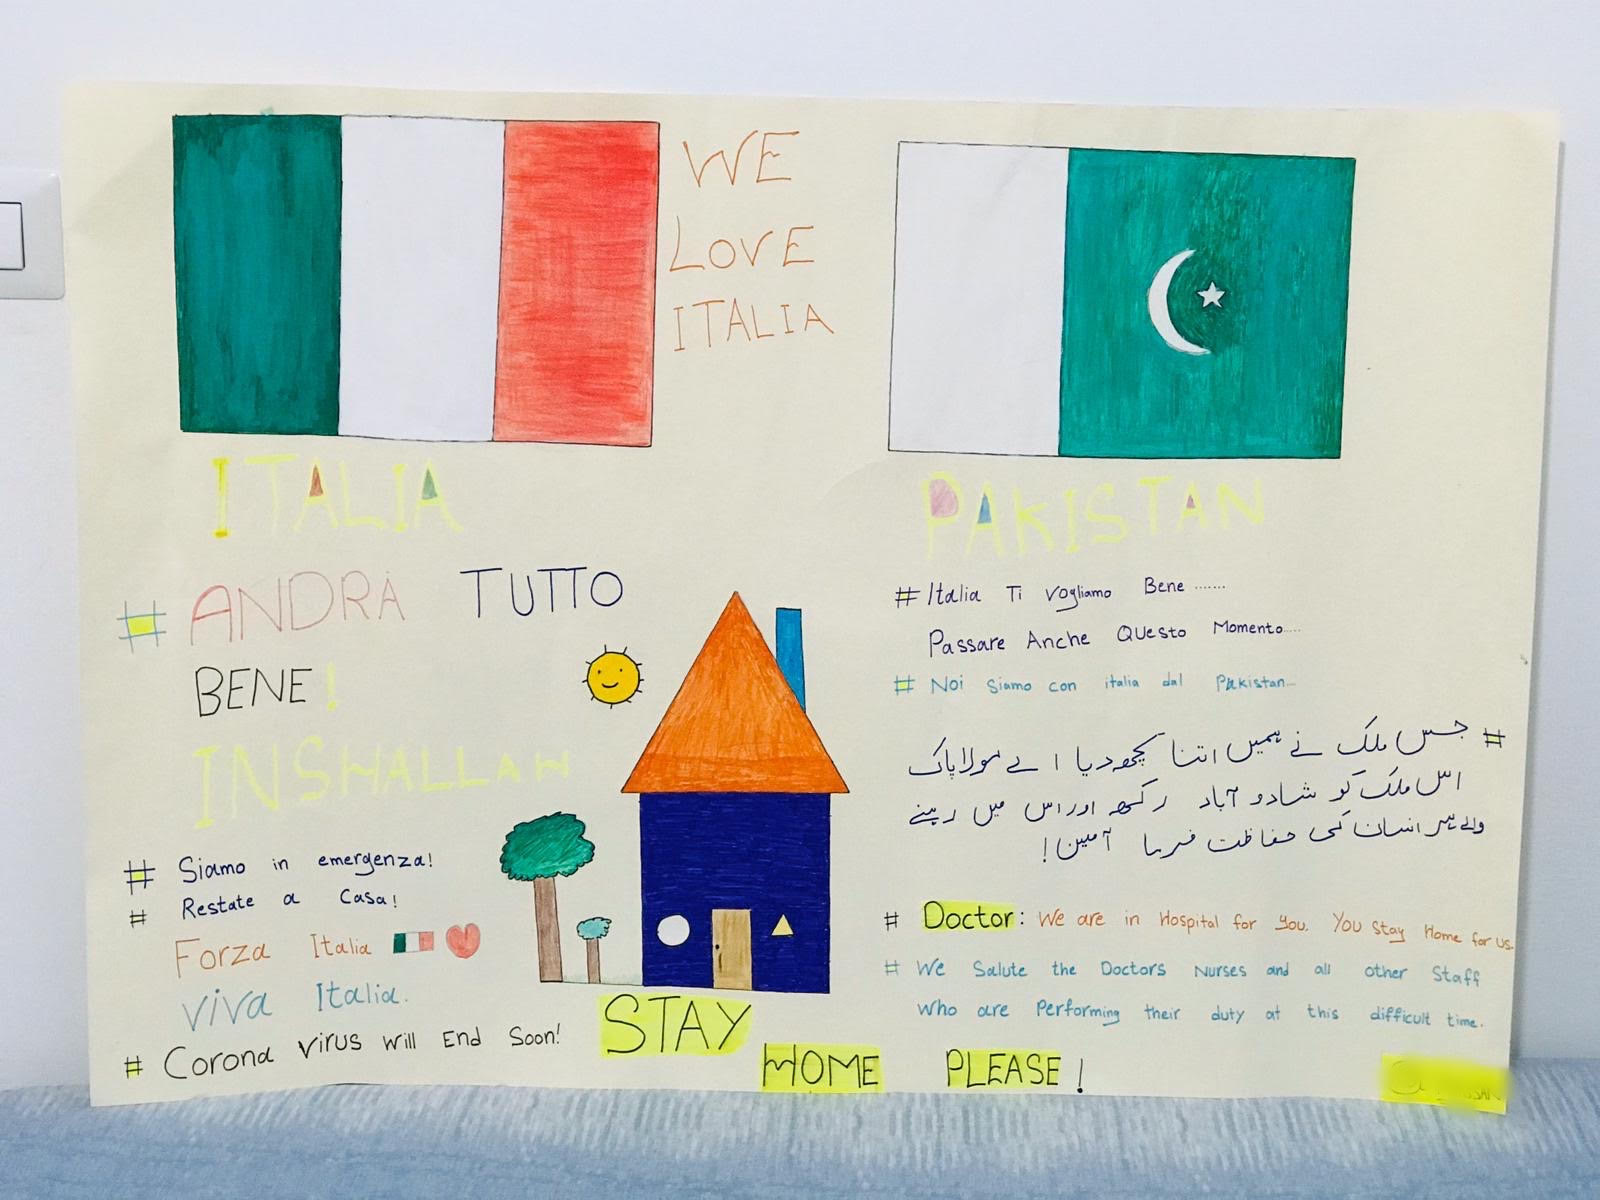 WE
LOVE
ITALIA
ITALIA
# ANDRÀ TUTTO
BENE!
INSHALLAH
# Siamo in emergenza!
# Restate a Casa!
Forza Italia
viva Italia.
# Corona virus will End Soon!
STAY
HOME PLEASE!
PAKISTAN
# Italia Ti vogliamo Bene .......
Passare Anche Questo Momento.....
# Noi Siamo con italia dal Pakistan...
# جس ملک نے ہمیں اتنا کچھ دیا اے مولا پاک
اس ملک کو شاد و آباد رکھ اور اس میں رہنے
والے ہر انسان کی حفاظت فرما آمین!
# Doctor: We are in Hospital for you. You Stay Home for us.
# We Salute the Doctors Nurses and all other Staff
who are Performing their duty at this difficult time.